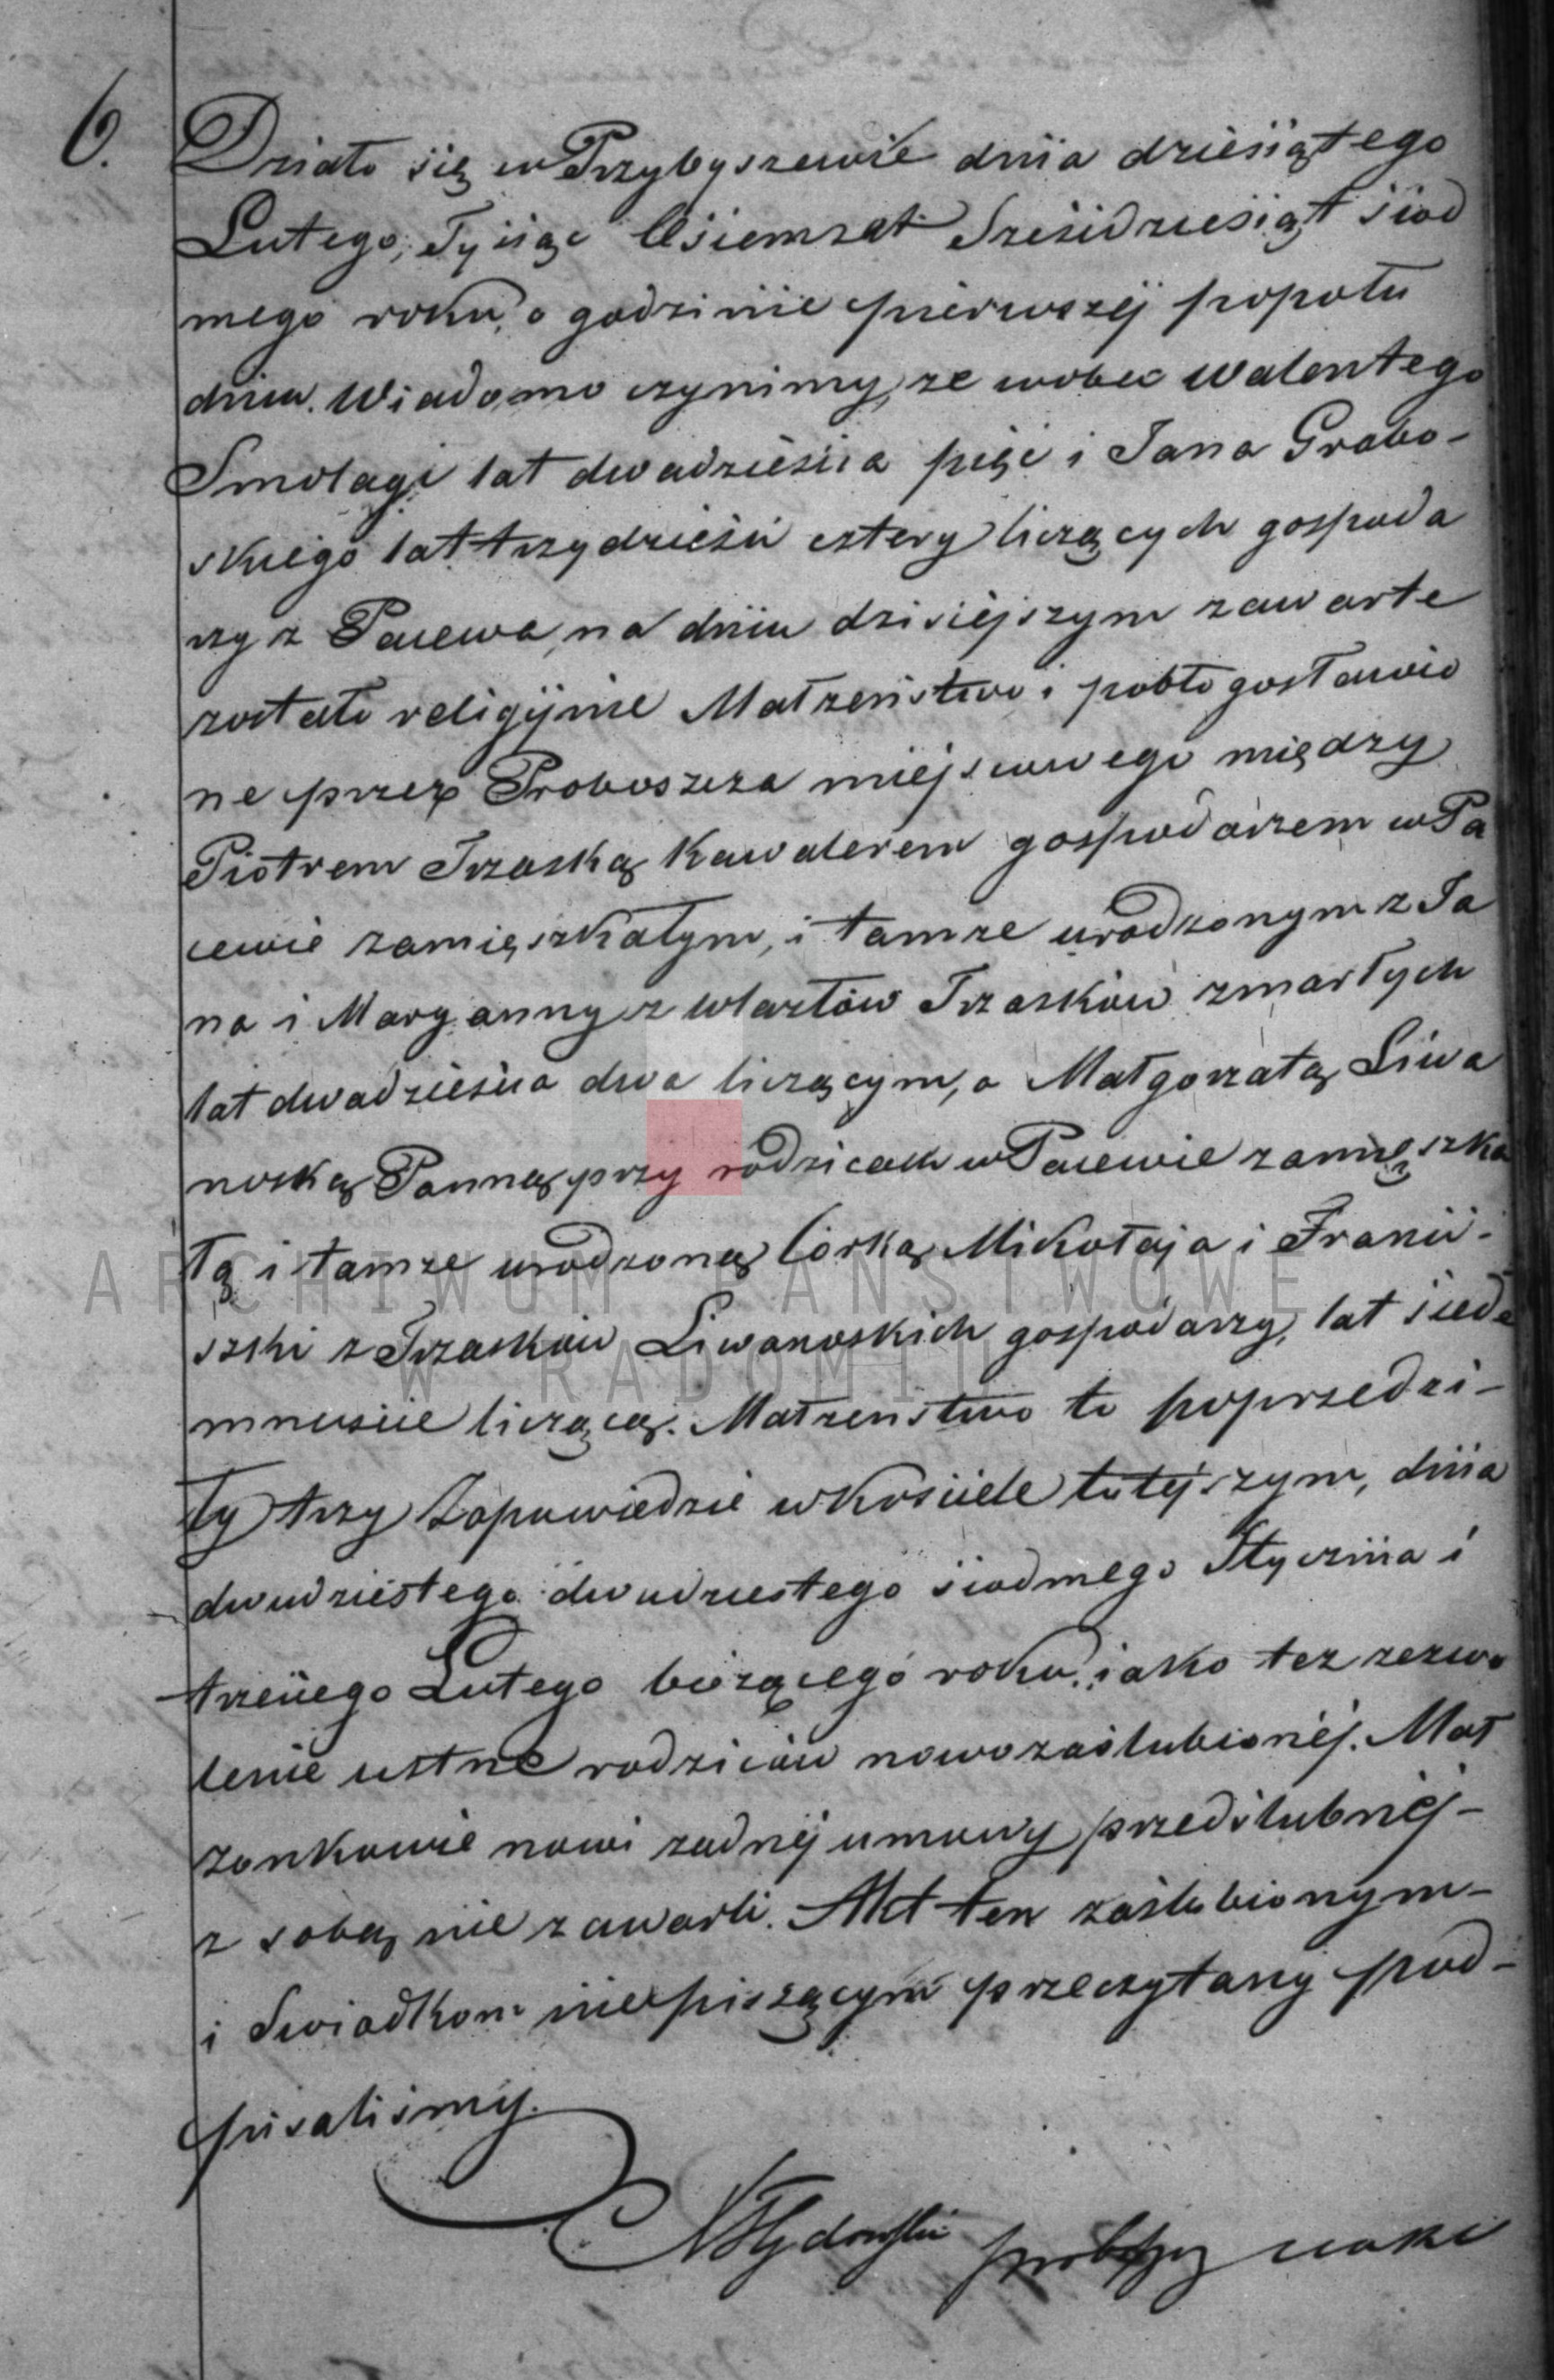 6.
Działo się w Przybyszewie dnia dziesiątego
Lutego, Tysiąc Ośiemset Sześćdziesiąt siod
mego roku, o godzinie pierwszéj popołu
dniu. Wiadomo czynimy, ze wobec Walentego
Smolagi lat dwadzieścia pięc i Jana Grabo-
skiego lat trzydzieści cztery liczących gospoda
rzy z Pacewa, na dniu dzisiéjszym zawarte
zostało religijnie Małzeństwo i pobłogosławio
ne przez Proboszcza miéjscowego między
Piotrem Trzaską Kawalerem gospodarzem w Pa
cewie zamięszkałym, i tamze urodzonym z Ja
na i Maryanny z Wlazłów Trzasków zmarłych
lat dwadzieścia dwa liczącym, a Małgorzatą Liwa
noską Panną przy rodzicach w Pacewie zamięszka
łą i tamze urodzoną Córką Mikołaja i Franci-
szki z Trzasków Liwanoskich gospodarzy, lat siede
mnascie liczącą. Małzenstwo to poprzedzi-
ły trzy Zapowiedzie w Kosciele tutéjszym, dnia
dwudziestego dwudziestego siodmego Stycznia i
trzeciego Lutego biezącego roku, jako tez zezwo
lenie ustne rodziców nowozaślubionéj. Mał
zonkowie nowi zadnéj umowy przedślubnéj-
z sobą nie zawarli. Akt ten zaślubionym-
i Swiadkom niepiszącym przeczytany pod-
pisaliśmy.
ARCHIWUM PAŃSTWOWE
W RADOMIU